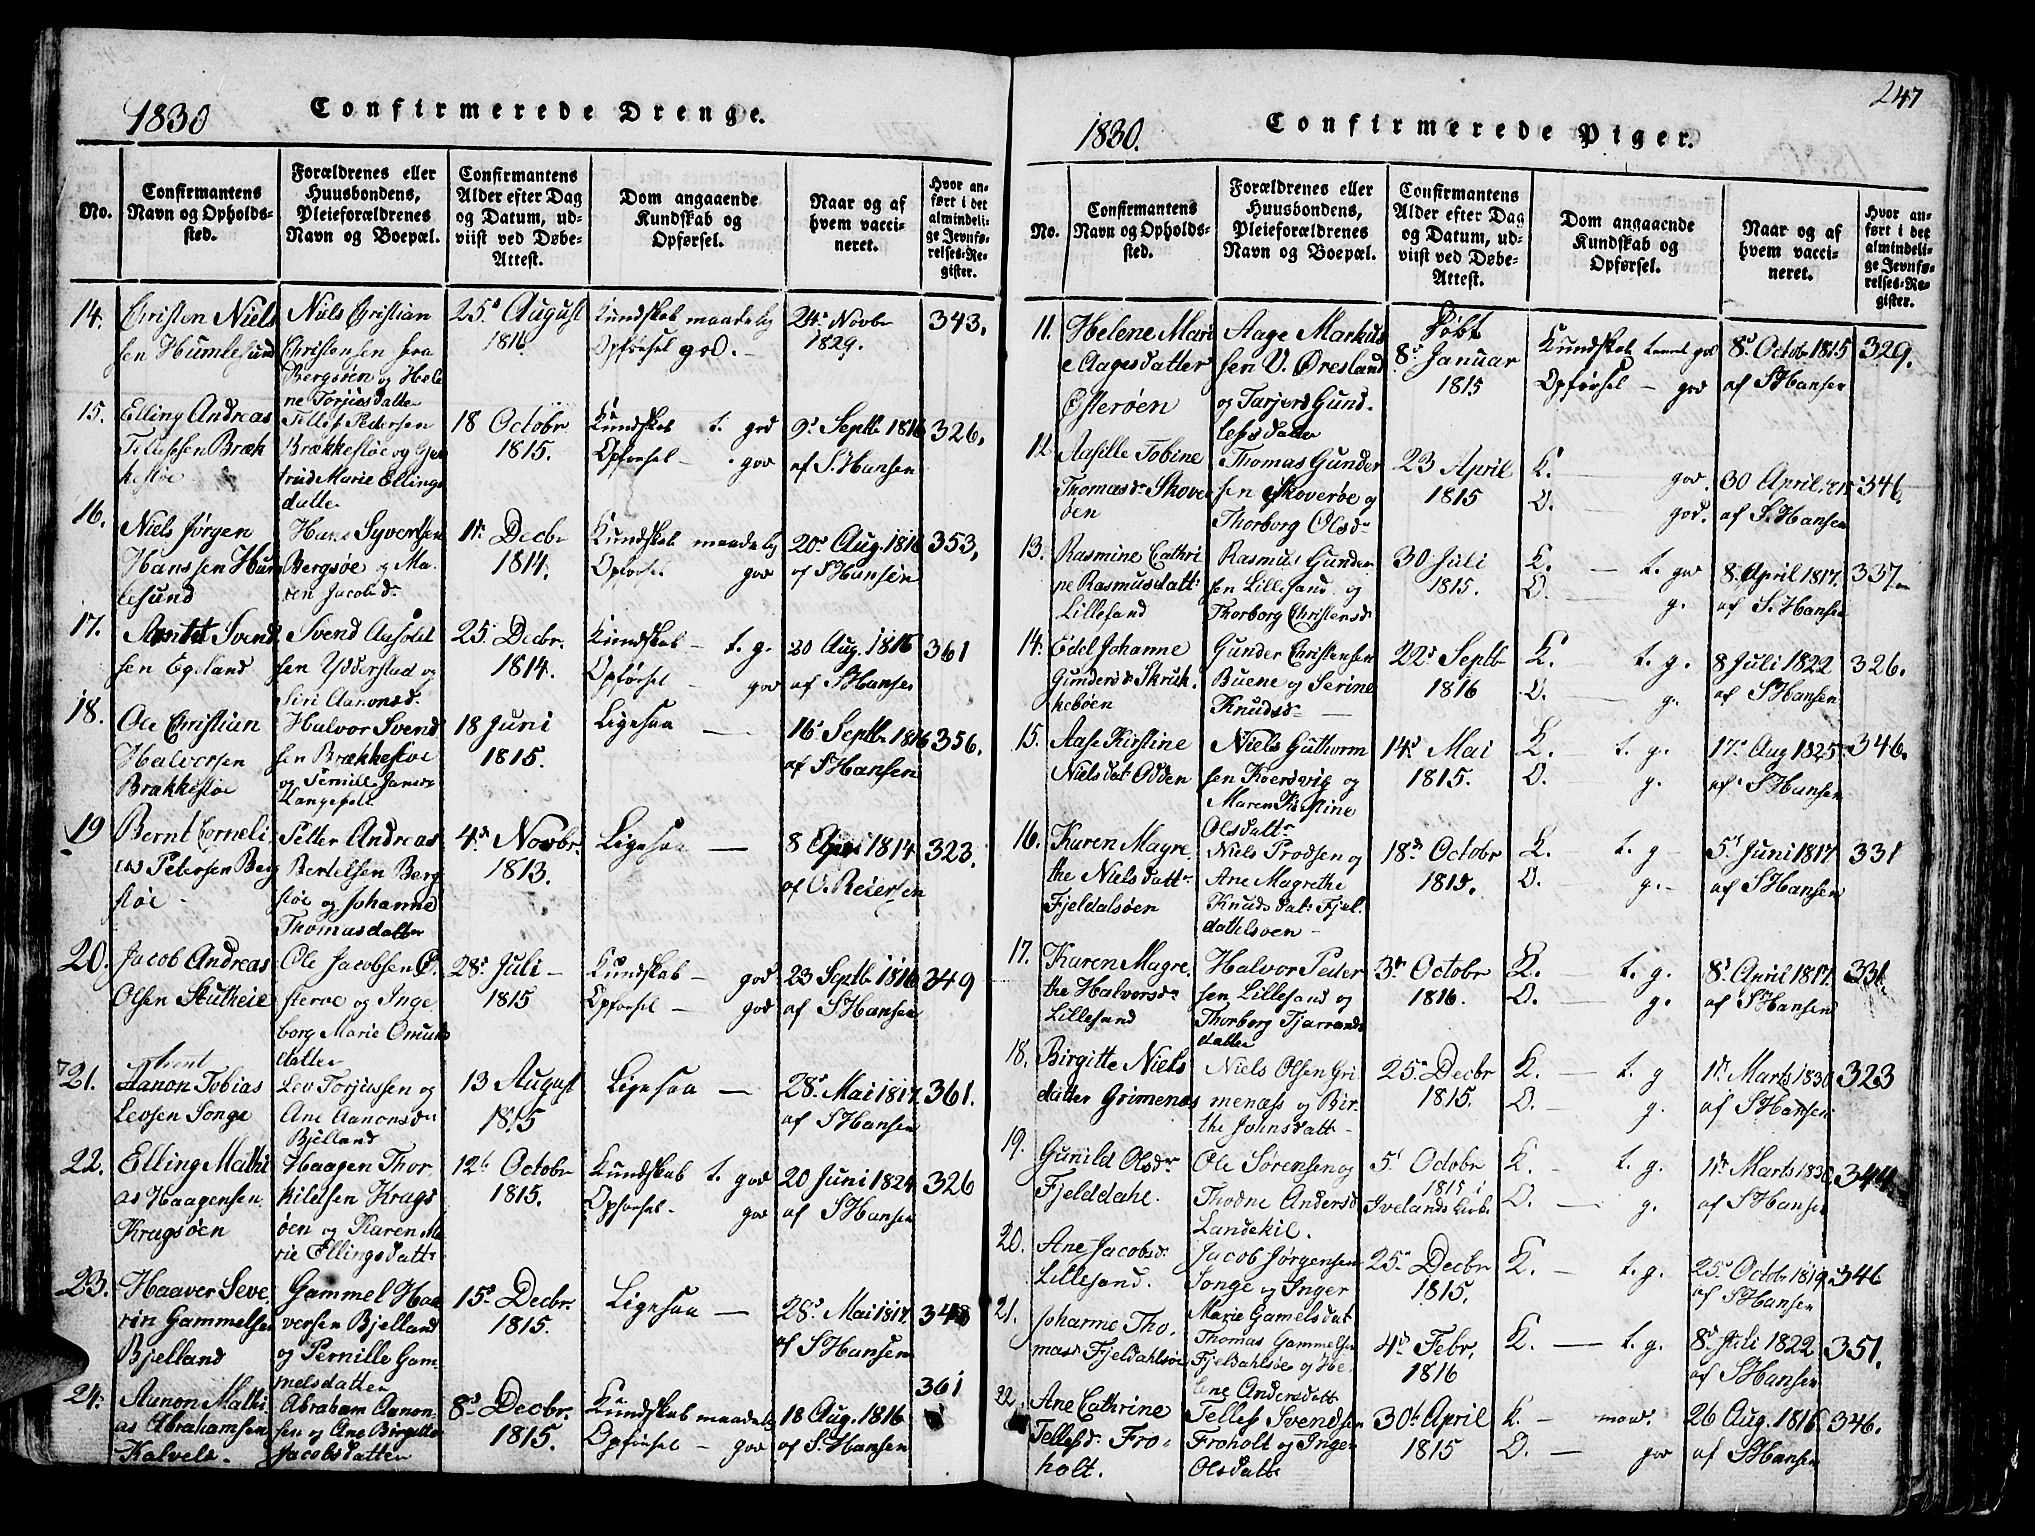 247
1830 Confirmerede Drenge.
No.
Confirmantens
Navn og Opholds-
sted.
Forældrenes eller
Huusbondens,
Pleieforældrenes
Navn og Boepæl.
Confirmantens
Alder efter Dag
og Datum, ud-
viist ved Døbe-
Attest.
Dom angaaende
Kundskab og
Opførsel.
Naar og af
hvem vacci-
neret.
Hvor an-
ført i det
almindeli-
ge Jevnfø-
relses-Re-
gister.
14. Christen Niels
sen Humlesund
Niels Christian
Christensen fra
Bergsøen og Hele
ne Torjusdatter
25d August
1816
Kundskab maadelig
Opførsel god. -
24d Novbr
1829.
343.
15. Elling Andreas
Tellefsen Bræk
kestøe
Tellef Pedersen
Brækkestøe og Gjer
trud Marie Ellings
datter
18 Octobr
1815.
Kundskab t. god
Opførsel - god
9d Septbr 1816
af S. Hansen
326.
16. Niels Jørgen
Hanssen Hum
lesund
Hans Syvertsen
Bergsøe og Ma-
ren Jacobsd.
11d Decbr
1814.
Kundskab maadelig
Opførsel god
20d Aug. 1816
af S Hansen
353.
17. Svend
sen Egeland
Svend
sen Ydderstad og
Siri Aanonsd.
25d Decbr.
1814.
Kundskab - t. g.
Opførsel - god
20 Aug. 1816
af S Hansen
361
18. Ole Christian
Halvorsen
Brækkestøe
Halvor Svend
sen Brækkestøe
og Pernille
18 Juni
1815.
Ligesaa -
16d Septbr 1816
af S Hansen
356.
19 Bernt Corneli
us Petersen Berg
støe -
Petter Andreas
Bertelsen Berg
støe og Johanne
Thomasdatter
4d Novbr.
1813.
Ligesaa -
8 1814
af O. Reiersen
323.
20. Jacob Andreas
Olsen Stutheie
Ole Jacobsen
og Inge
borg Marie Omund
datter
28d Juli -
1815
Kundskab - god
Opførsel - god
23 Septbr 1816
af S Hansen
349
21. Aanon Tobias
Levsen Songe
Lev Torjussen og
Ane Aanonsdr
Bjelland
13 August
1815
Ligesaa -
28d Mai 1817.
af S Hansen
361.
22. Elling Mathi
as Haagensen
Kragsøen
Haagen Thor-
kildsen Krags
øen og Karen Ma
rie Ellingsdattr
12te Octobr
1815.
Kundskab t. god
Opførsel. god
20 Juni 1824
af S Hansen
326
23. Haaver Seve
rin Gammelsen
Bjelland
Gammel Haa
versen Bjelland
og Pernille Gam
melsdatter
15d Decbr.
1815.
Ligesaa -
28d Mai 1817.
af S Hansen
348
24. Aanon Mathi
as Abrahamsen
Kalveld.
Abraham Aanon-
sen og Ane Birgitte
Jacobsdatter
8d Decbr.
1815.
Kundskab maadelig
Opførsel - god
18 Aug. 1816
af S. Hansen
361
1830. Confirmerede Piger.
No.
Confirmantens
Navn og Opholds-
sted.
Forældrenes eller
Huusbondens,
Pleieforældrenes
Navn og Boepæl.
Confirmantens
Alder efter Dag
og Datum, ud-
viist ved Døbe-
Attest.
Dom angaaende
Kundskab og
Opførsel.
Naar og af
hvem vacci-
neret.
Hvor an-
ført i det
almindeli-
ge Jevnfø-
relses-Re-
gister.
11. Helene Mari
e Aagesdatter
Østerøen
Aage Markus
sen V. Øresland
og Tarjerd Gund-
lefsdatter
Føbt
8d Januar
1815
Kundskab temel. god
Opførsel - god
8d Octobr 1815
af S Hansen
329.
12. Aasille Tobine
Thomasdr Skover
øen
Thomas Gunder
sen Skoverøe og
Thorborg Olsdr
23 April
1815
K. - god.
O. - god.
30 April
af S. Hansen
346.
13. Rasmine Cathri
ne Rasmusdatt:
Lillesand
Rasmus Gunder
sen Lillesand og
Thorborg Christensd
30 Juli
1815.
K. - t. god
O. - g.
8 April 1817.
af S. Hansen
337-
14. Edel Johanne
Gundersd. Skruk
kebøen
Gunder Christensen
Buene og Serine
Knudsd. -
22d Septbr
1816
K. - t. g.
O. - g.
8 Juli 1822
af S Hansen
326.
15. Aase Kirstine
Nielsdat. Odden
Niels Guthorm
sen Koersvig og
Maren Kis Mine
Olsdattr
14d Mai
1815.
K. t. g.
O. g.
17d Aug 1825.
af S Hansen
346.
16. Karen Magre
the Nielsdattr
Fjeldalsøen
Niels Trodsen og
Ane Magrethe
Knudsdat: Fjel-
dahlsoen -
18d Octobr
1815.
K. t. g -
O. g. -
5d Juni 1817
af S Hansen
331
17. Karen Magre
the Halvorsdr
Lillesand
Halvor Peder
sen Lillesand og
Thorborg Tjærrands
datter
3d Octobr
1816.
K. - t. g.
O. - g.
8d April 1817.
af S Hansen
331.
18. Birgitte Niels
datter Grimenæs
Niels Olsen Gri
menæss og Bir-
the Johnsdatt -
25d Decbr
1815.
K. - t. g
O. - g.
11d Marts 1830
af S Hansen
323
19. Gunild Olsdr
Fjelddahl.
Ole Sørensen og
Thodne Andersd
Landekil.
5d Octobr
1815 i
Ivelands Kirke
K. - t. g.
O. - g.
11d Marts 1830
af S Hansen
344
20. Ane Jacobsd.
Lillesand.
Jacob Jørgensen
Songe og Inger
Marie Gamelsdat
25d Decbr
1815.
K. - t. g.
25d Octobr 1819
af S Hansen
346
21. Johanne Tho-
masd Fjeldahlsøe
Thomas Gammelsen
Fjeldahlsøe og He-
lene Andersdatt
4d Febr.
1816
K. - t. g.
8d Juli 1822
af S Hansen
351.
22. Ane Cathrine
Tellefsd. Fro-
holt.
Tellef Svendsen
Froholt og Inger
Olsdatt
30te April
1815
K. - maad.
O. - god
26 Aug. 1816
af S Hansen
346.